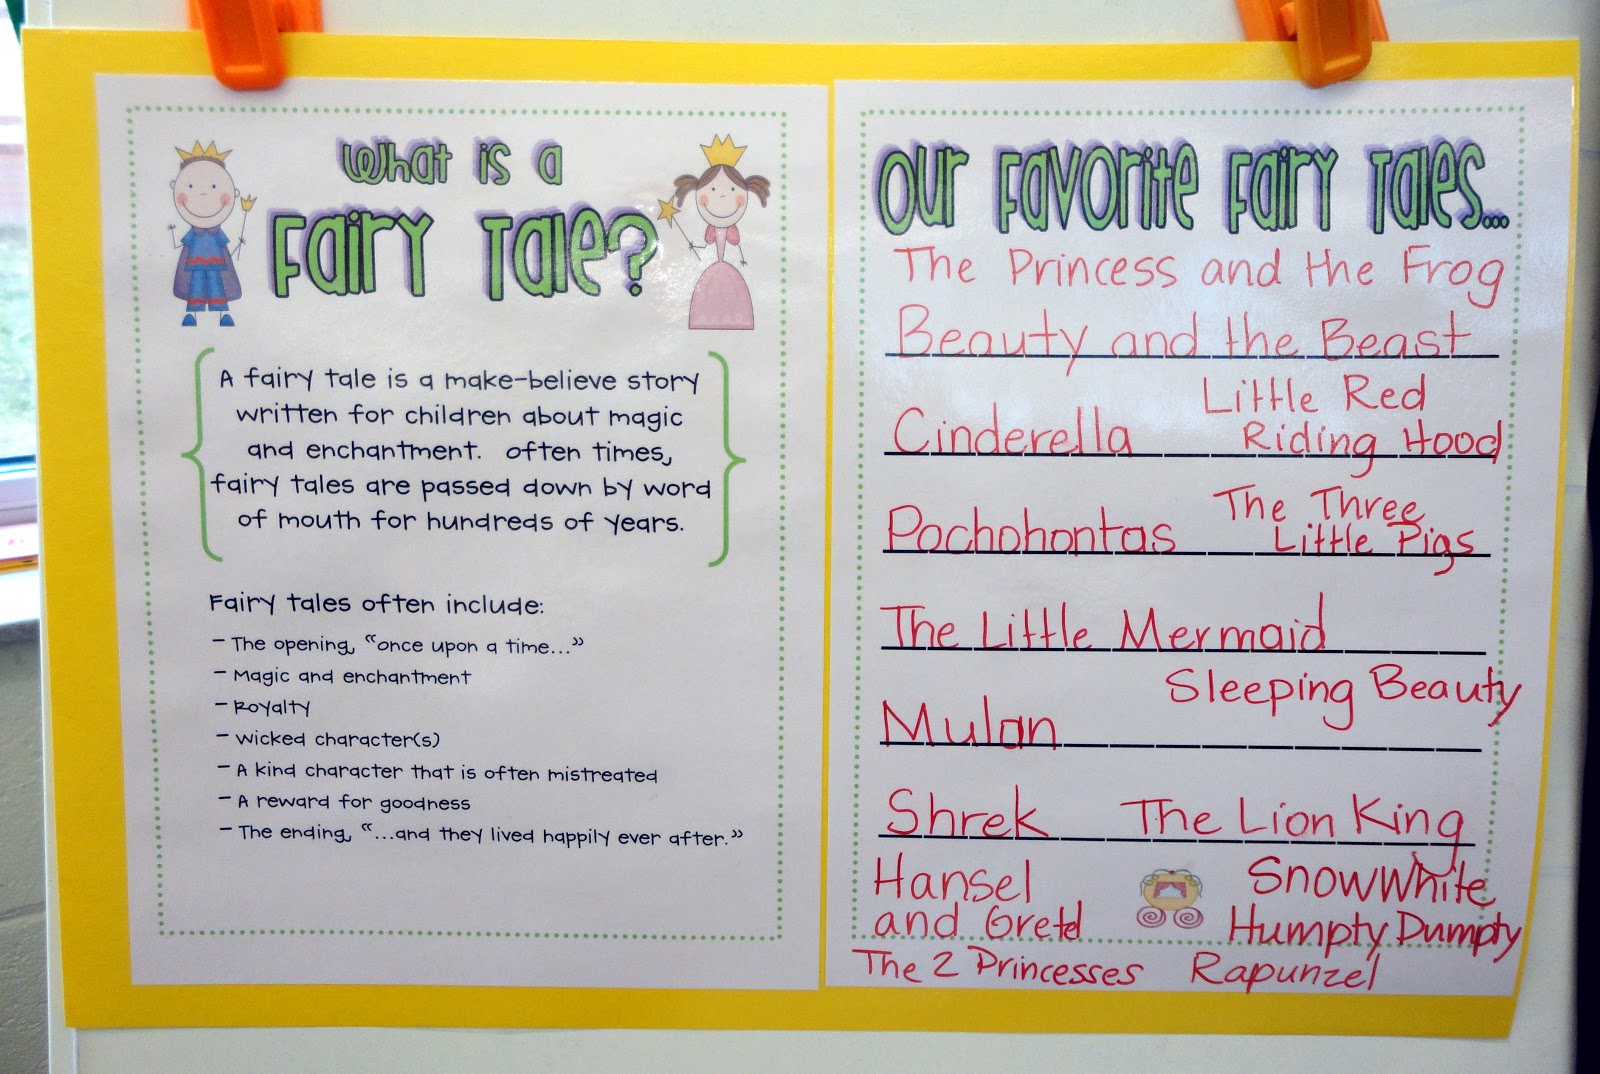 What is a
Fairy Tale?
A fairy tale is a make-believe story
written for children about magic
and enchantment. Often times,
fairy tales are passed down by word
of mouth for hundreds of years.
Fairy tales often include:
- The opening, "once upon a time..."
- Magic and enchantment
- Royalty
- Wicked character(s)
- A kind character that is often mistreated
- A reward for goodness
- The ending, "...and they lived happily ever after."
Our Favorite Fairy Tales...
The Princess and the Frog
Beauty and the Beast
Little Red
Cinderella Riding Hood
The Three
Pochohontas Little Pigs
The Little Mermaid
Sleeping Beauty
Mulan
Shrek The Lion King
Hansel SnowWhite
and Gretel Humpty Dumpty
The 2 Princesses Rapunzel